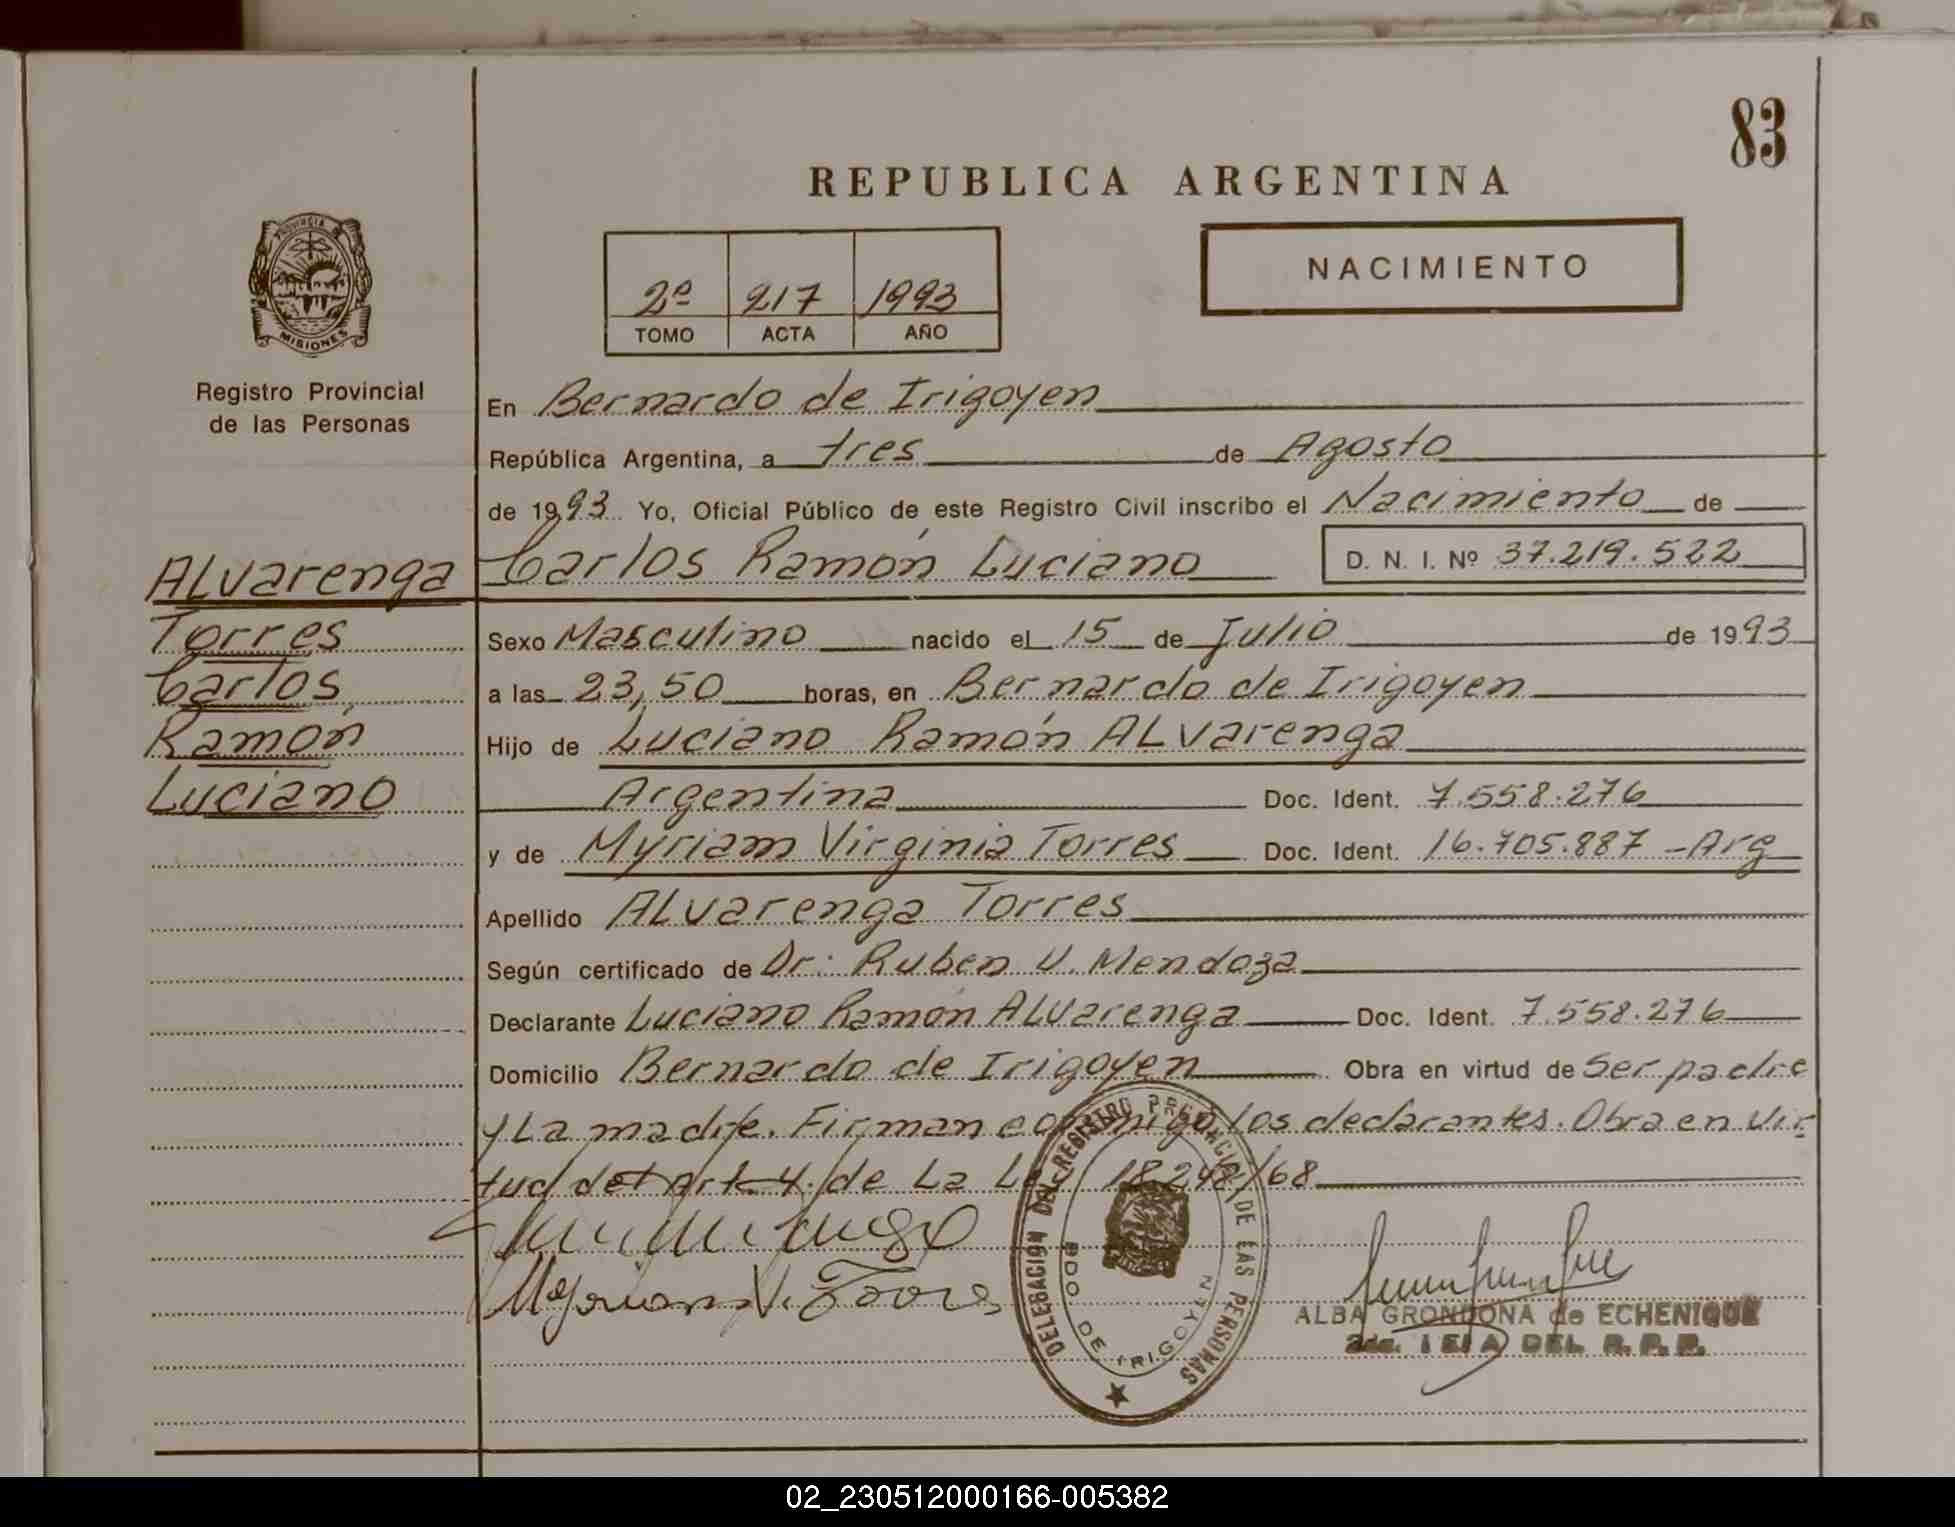 83
REPUBLICA ARGENTINA
NACIMIENTO
2º 217 1993
TOMO ACTA AÑO
PROVINCIA DE
MISIONES
Registro Provincial
de las Personas
En Bernardo de Irigoyen
República Argentina, a tres de Agosto
de 1993 Yo, Oficial Público de este Registro Civil inscribo el Nacimiento de
Carlos Ramón Luciano D. N. I. Nº 37.219.522
Alvarenga
Torres
Carlos
Ramón
Luciano
Sexo Masculino nacido el 15 de Julio de 1993
a las 23,50 horas, en Bernardo de Irigoyen
Hijo de Luciano Ramón Alvarenga
Argentina Doc. Ident. 7.558.276
y de Myriam Virginia Torres Doc. Ident. 16.705.887 - Arg
Apellido Alvarenga Torres
Según certificado de Dr. Ruben V. Mendoza
Declarante Luciano Ramón Alvarenga Doc. Ident. 7.558.276
Domicilio Bernardo de Irigoyen Obra en virtud de ser padre
y La madre. Firman conmigo los declarantes. Obra en vir-
tud del Art. 4 de La Ley 18.248/68
Myriam V. Torres
DELEGACION DEL REGISTRO PROVINCIAL DE LAS PERSONAS
BDO DE IRIGOYEN
ALBA GRONDONA de ECHENIQUE
2da. JEFA DEL R.P.P.
02_230512000166-005382